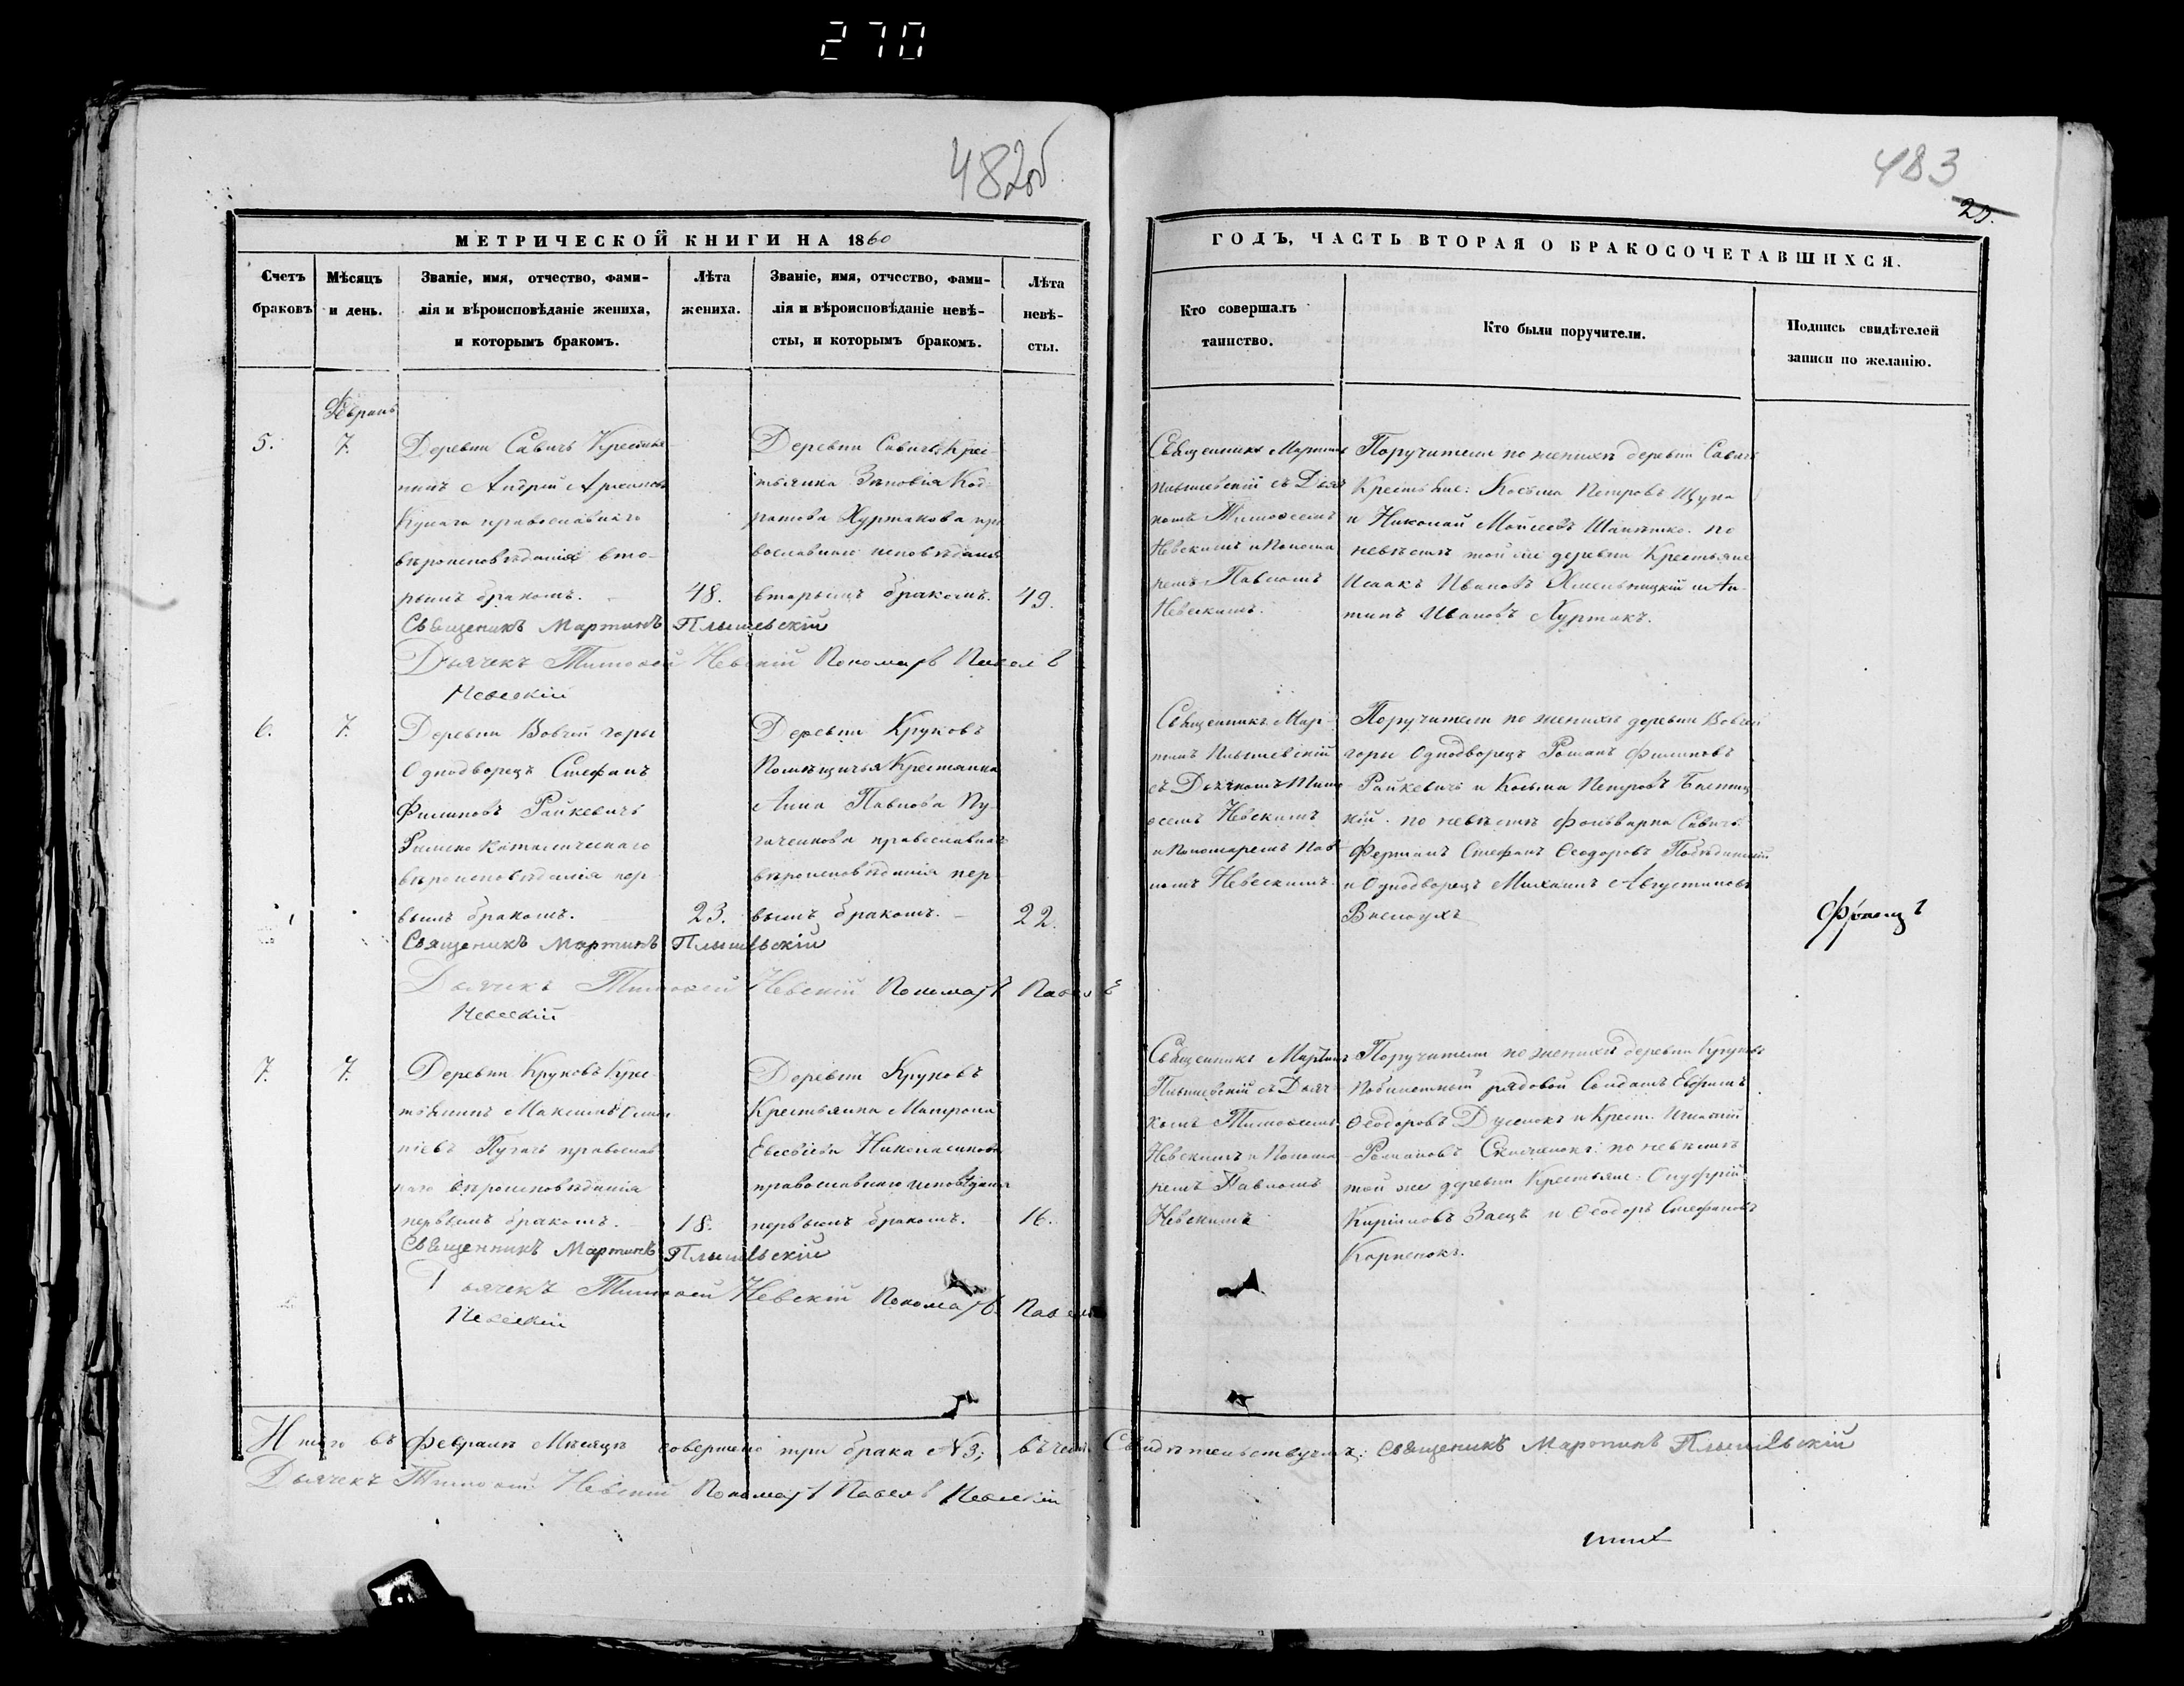 270
482об
МЕТРИЧЕСКОЙ КНИГИ НА 1860
Счетъ браковъ
Мѣсяцъ и день.
Званіе, имя, отчество, фами-
лія и вѣроисповѣданіе жениха,
и которымъ бракомъ.
Лѣта
жениха.
Званіе, имя, отчество, фами-
лія и вѣроисповѣданіе невѣ-
сты, и которымъ бракомъ.
Лѣта
невѣ-
сты.
Февраль
5.
7.
Деревни Савичъ Крестья-
нинъ Андрей
православнаго
вѣроисповѣданія вто-
рымъ бракомъ.
48.
Деревни Савичъ Крес-
тьянка Зѣновія Код-
ратова Хуртакова пра
вославнаго исповѣданія
вторымъ бракомъ.
49.
Священикъ Мартинъ Плышевскій
Дьячекъ Тимофей Невскій Пономарь Павелъ
Невскій
6.
7.
Деревни Вовчей горы
Однодворецъ Стефанъ
Филиповъ Райкевичъ
Римско Католическаго
вѣроисповѣданія пер
вымъ бракомъ.
23.
Деревни Круковъ
Помѣщичья Крестянка
Анна Павлова Пу-
гаченкова православнаго
вѣроисповѣданія пер
вымъ бракомъ.
22.
Священикъ Мартинъ Плышевскій
Дьячекъ Тимофей Невскій Пономарь Павелъ
Невскій
7.
7.
Деревни Круковъ Крес
тьянинъ Максимъ
Пугачъ православ
наго вѣроисповѣданія
первымъ бракомъ.
18.
Деревни Круковъ
Крестьянка Матрона
Евсевіева Николаенкова
православнаго исповѣданія
первымъ бракомъ.
16.
Священникъ Мартинъ Плышевскій
Дьячекъ Тимофей Невскій Пономарь Павелъ
Невскій
Итого въ Февралѣ Мѣсяцѣ совершено три брака №3; въ чемъ Свидѣтельствуемъ: Священикъ Мартинъ Плышевскій
Дьячекъ Тимофей Невскій Пономарь Павелъ Невскій
483
ГОДЪ, ЧАСТЬ ВТОРАЯ О БРАКОСОЧЕТАВШИХСЯ.
Кто совершалъ
таинство.
Кто были поручители.
Подпись свидѣтелей
записи по желанію.
Священникъ Мартинъ
Плышевскій съ Дьяч
комъ Тимофеемъ
Невскимъ и Понома
ремъ Павломъ
Невскимъ.
Поручители по женихѣ деревни Савичъ
Крестьяне: Косьма Петровъ Щука
и Николай Мойсеевъ. по
невѣстѣ той же деревни Крестьяне
Исаакъ Ивановъ Хмельницкій и Ан-
типъ Ивановъ Хуртакъ.
Священникъ Мар-
тинъ Плышевскій
съ Дьячкомъ Тимо
феемъ Невскимъ
и Пономаремъ Пав
ломъ Невскимъ.
Поручители по женихѣ деревни Вовчей
горы Однодворецъ Романъ Филиповъ
Райкевичъ и Косьма Петровъ
по невѣстѣ фольварка Савичъ
Стефанъ Феодоровъ
и Однодворецъ Михаилъ Августиновъ
Вислоухъ
Священникъ Мартинъ
Плышевскій съ Дьяч
комъ Тимофеемъ
Невскимъ и Понома
ремъ Павломъ
Невскимъ
Поручители по женихѣ деревни Круковъ
рядовой Солдатъ Евфимъ
Феодоровъ и Крест. Игнатій
Романовъ по невѣстѣ
той же деревни Крестьяне: Онуфрій
Кириловъ Заецъ и Феодоръ Стефановъ
Карпенокъ.